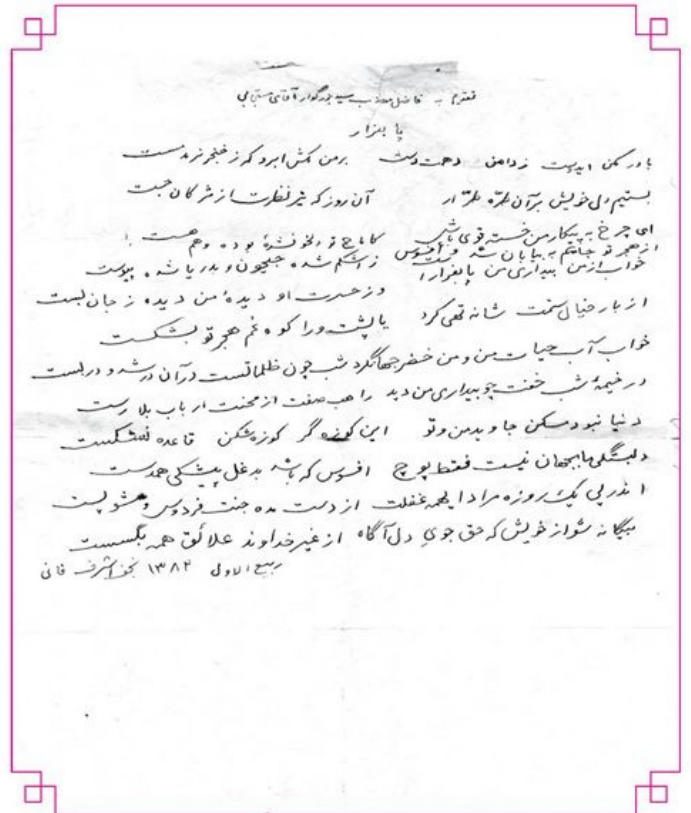 تقدیم به فاضل مهذب سید بزرگوار آقای
پا بفرار
باور کن امیدست ز دامن دهمت دست برمن مکش ابرو که ز خنجر نرمد مست
بستیم دل خویش بر آن طره طرار آن روز که تیر نظرت از مژگان جست
ای چرخ به پیکار من خسته قوی باش کاماج تو دلخونشده بوده و هم هست
از هجر تو جانم به بیابان شد افسوس ز اشکم شده جیحون و بدریا شده پیوست
خواب از من بیداری من پا بفرارا وز حسرت او دیدهٔ من دیده ز جان بست
از بار خیال شانه تهی کرد یا پشت ورا کوه غم هجر تو بشکست
خواب آب حیات من و من خضر جهانگرد شب چون ظلماتست در آن در شد و دربست
در خیمهٔ شب خفت چو بیداری من دید راهب صفت از محنت ارباب بلا رست
دنیا نبود مسکن جاوید من و تو این کوزه گر کوزه شکن قاعده نشکست
دلبستگی ما بجهان نیست فقط پوچ افسوس که باشد بدغل پیشگی همدست
اندر پی یک روزه مرادا اینهمه غفلت از دست مده جنت فردوس و مشو پست
بیگانه شو از خویش که حق جوی دل آگاه از غیر خداوند علائق همه بگسست
ربیع الاول ۱۳۸۲ نجف اشرف فانی